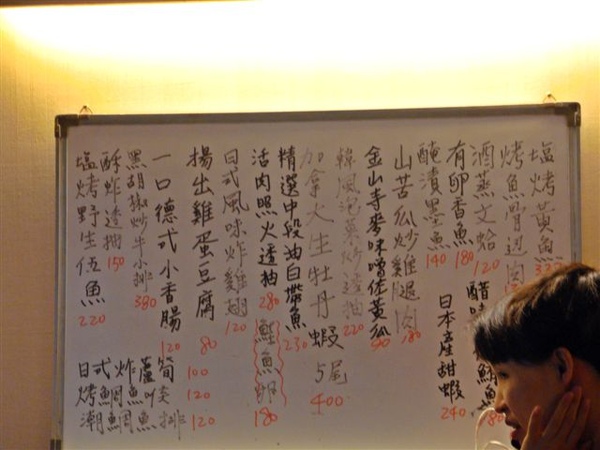 塩烤黃魚 320
烤魚骨邊肉
酒蒸文蛤 120
有卵香魚 180
醃漬墨魚 140
醋味
日本產甜蝦 240
山苦瓜炒雞腿肉 180
金山寺麥味噌佐黃瓜 90
韓風泡菜炒透抽 220
加拿大生牡丹蝦 5尾 400
精選中段油白帶魚 230
活肉照火透抽 280
鮭魚卵 180
日式風味炸雞翅 120
揚出雞蛋豆腐 80
一口德式小香腸 120
黑胡椒炒牛小排 380
酥炸透抽 150
塩烤野生伍魚 220
日式炸蘆筍 100
烤鯛魚 120
潮鯛魚排 120